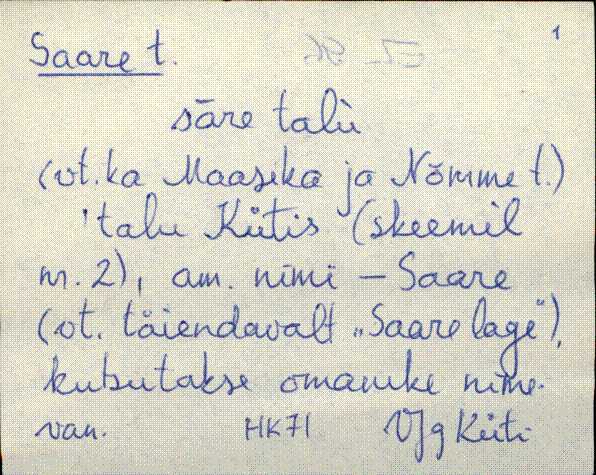 1
Saare t.
säre talù
(vt. ka Maasika ja Nõmme t.)
'talu Kütis (skeemil
nr. 2), am. nimi – Saare
(vt. täiendavalt „Saare lage"),
kutsutakse omanike nime.
van. HK71 VJg Küti